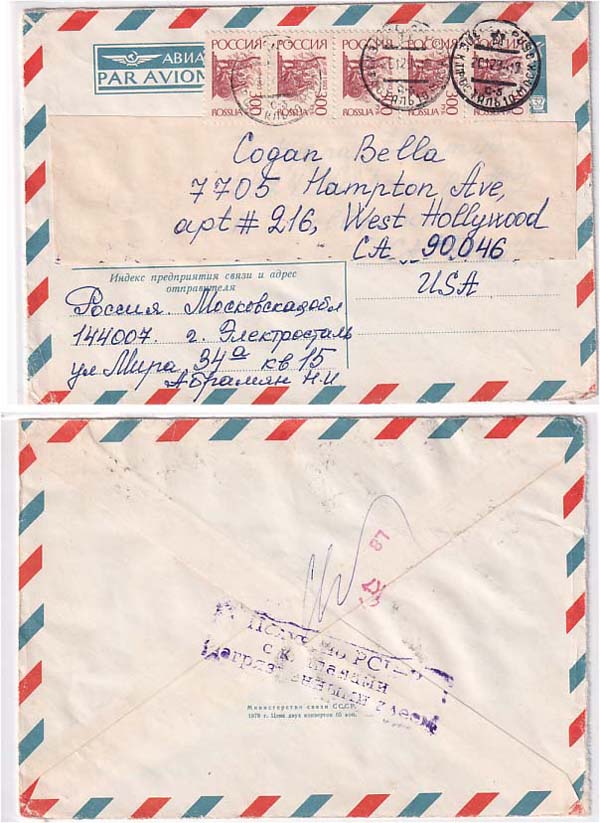 АВИА
PAR AVION
РОССИЯ РОССИЯ РОССИЯ РОССИЯ
ROSSIJA ROSSIJA ROSSIJA ROSSIJA
Cogan Bella
7705 Hampton Ave,
apt # 216, West Hollywood
CA 90046
USA
Индекс предприятия связи и адрес
отправителя
Россия. Московская обл
144007. г. Электросталь
ул Мира 34а кв 15
Абрамян Н.И
L8
с
Министерство связи СССР.
1979 г. Цена двух конвертов
коп.